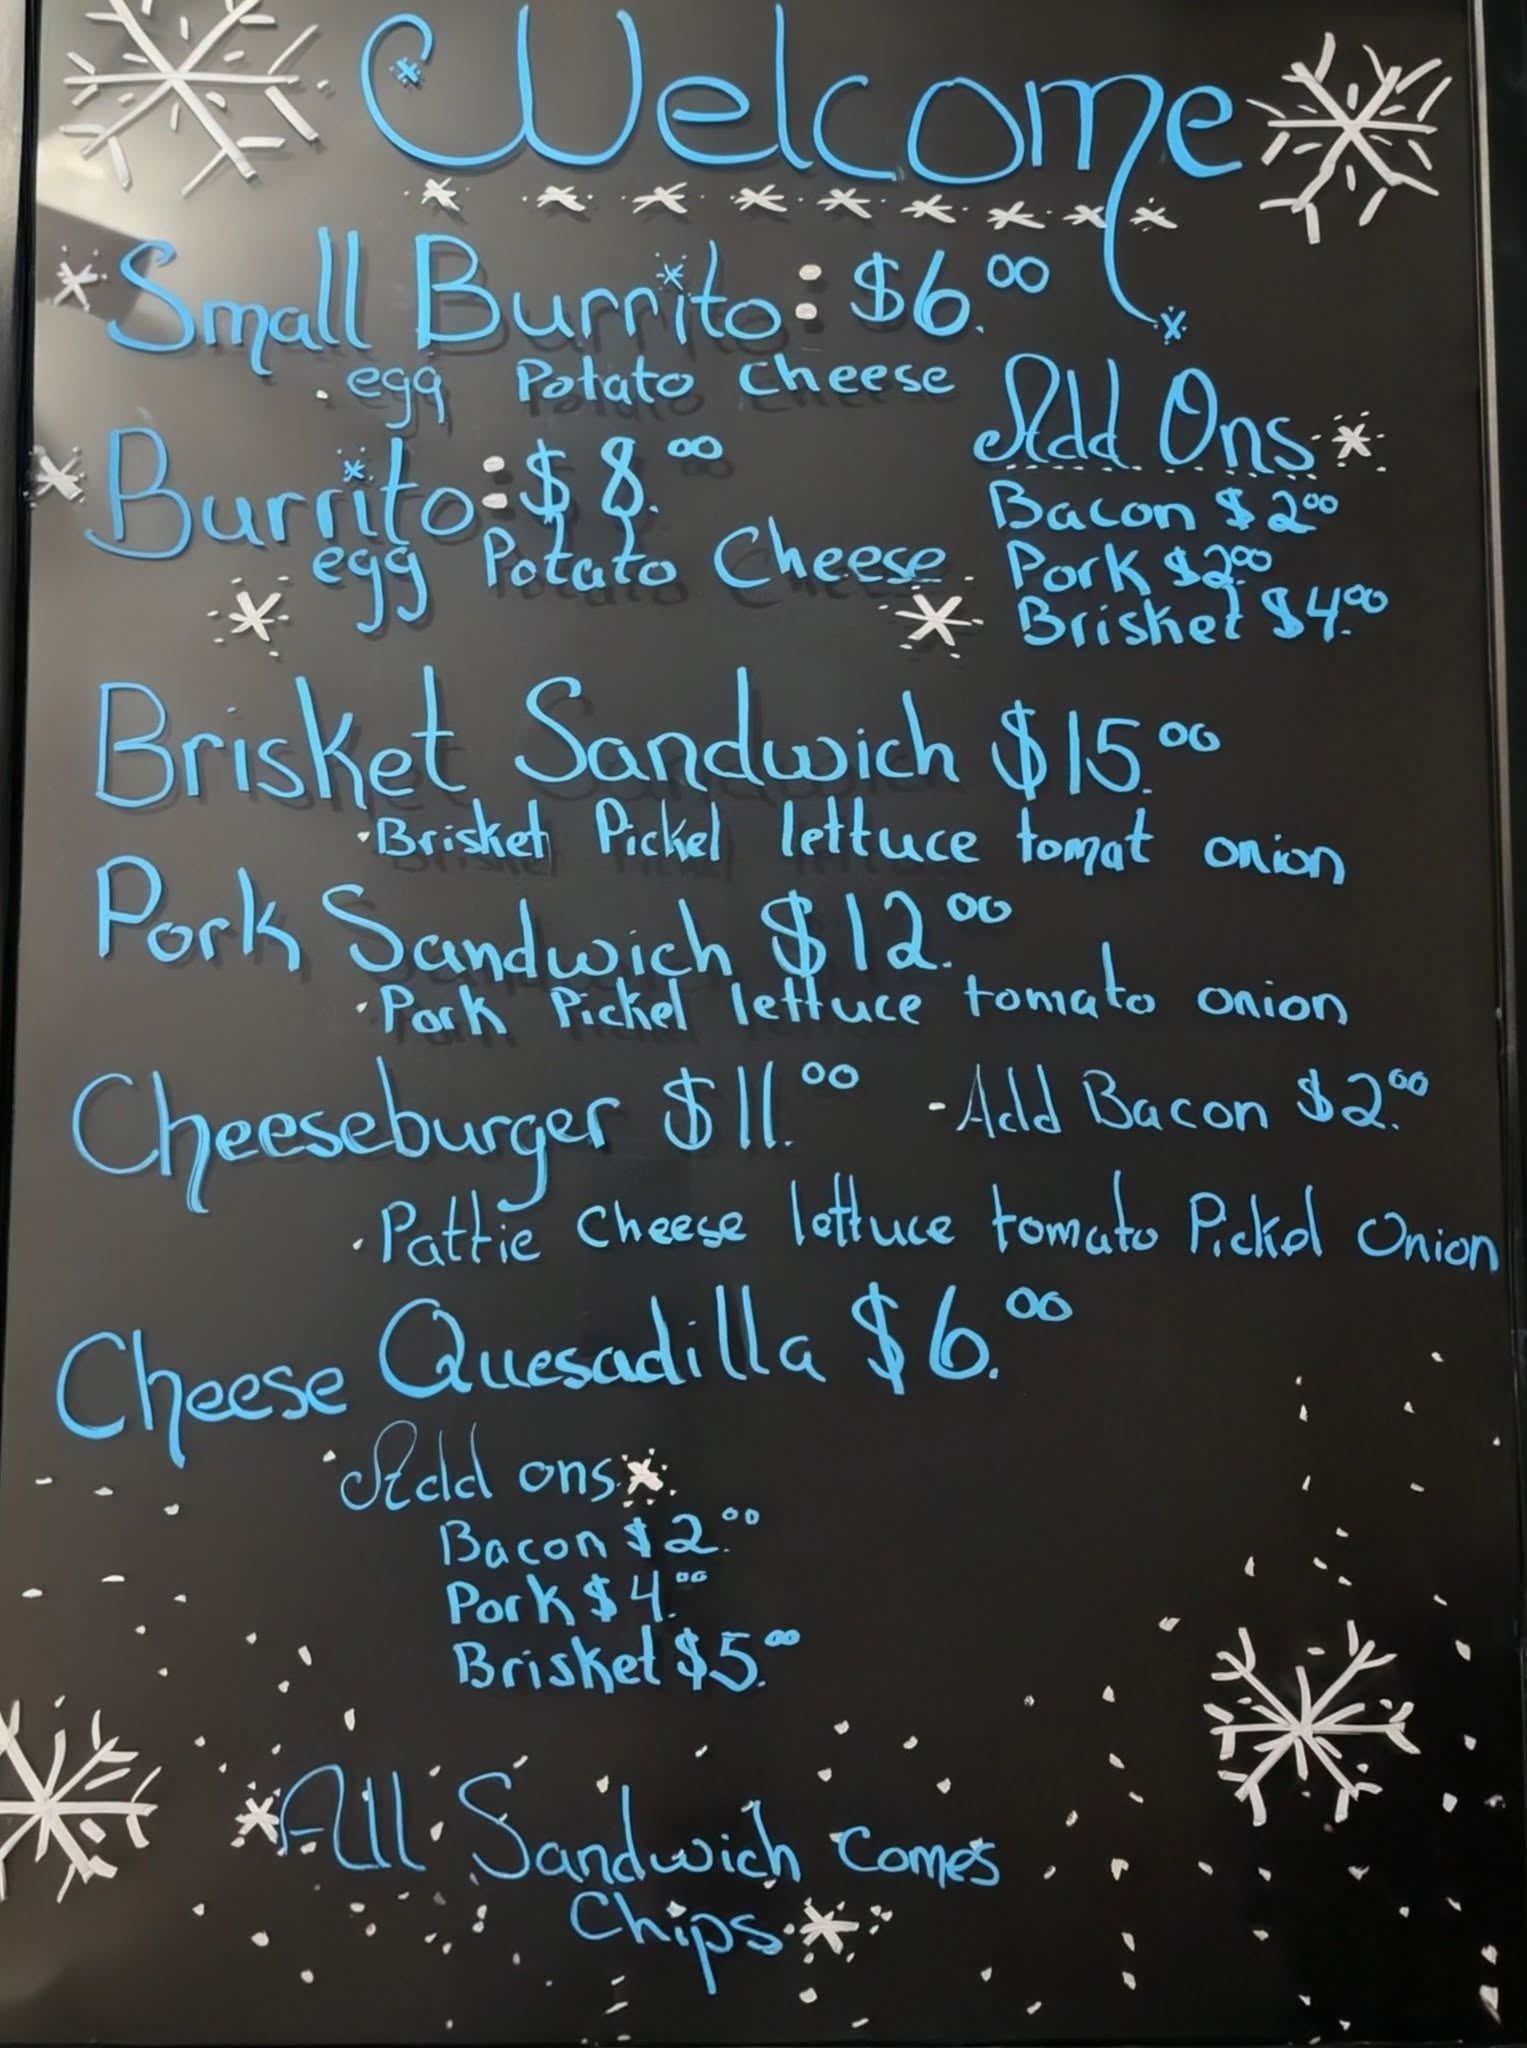 Welcome
Small Burrito: $6.00
. egg Potato Cheese
Burrito: $8.00
egg Potato Cheese
Add Ons
Bacon $2.00
Pork $2.00
Brisket $4.00
Brisket Sandwich $15.00
·Brisket Pickel lettuce tomat onion
Pork Sandwich $12.00
·Pork Pickel lettuce tomato onion
Cheeseburger $11.00 -Add Bacon $2.00
·Pattie Cheese lettuce tomato Pickel Onion
Cheese Quesadilla $6.00
·Add ons
Bacon $2.00
Pork $4.00
Brisket $5.00
All Sandwich Comes
Chips